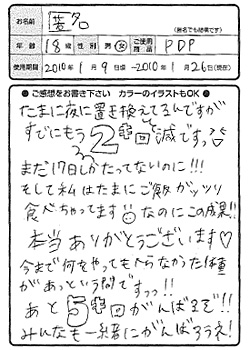 お名前 匿名
(匿名でも結構です)
年齢 18歳 性別 男・女 ご使用商品 PDP
使用期間 2010年1月9日頃〜2010年1月26日(現在)
● ご感想をお書き下さい カラーのイラストもOK ●
たまに夜に置き換えてるんですが
すでにもう2㌔減ですっ
まだ17日しかたってないのに!!!
そして私はたまにご飯ガッツリ
食べちゃってますなのにこの成果!!
本当ありがとうございます♡
今まで何をやってもへらなかった体重
があっという間ですっっ!!
あと5㌔がんばるぞ!!
みんなも一緒にがんばろうね!